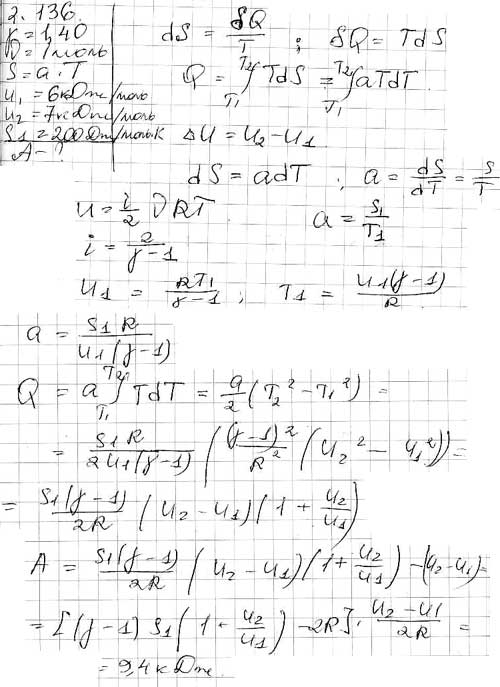 2.136.
γ = 1,40
ν = 1 моль
S = a·T
u₁ = 6 кДж/моль
u₂ = 7 кДж/моль
S₁ = 200 Дж/моль·К
A - ?
dS = δQ/T ; δQ = TdS
Q = ∫_{T₁}^{T₂} TdS = ∫_{T₁}^{T₂} aTdT
Δu = u₂ - u₁
dS = adT ; a = dS/dT = S/T
u = i/2 νRT
a = S₁/T₁
i = 2/(γ-1)
u₁ = RT₁/(γ-1) ; T₁ = u₁(γ-1)/R
a = S₁R/(u₁(γ-1))
Q = a ∫_{T₁}^{T₂} TdT = a/2 (T₂² - T₁²) =
= S₁R/(2u₁(γ-1)) ((γ-1)²/R² (u₂² - u₁²)) =
= S₁(γ-1)/2R (u₂ - u₁)(1 + u₂/u₁)
A = S₁(γ-1)/2R (u₂ - u₁)(1 + u₂/u₁) - (u₂ - u₁) =
= [(γ-1) S₁(1 + u₂/u₁) - 2R] · (u₂ - u₁)/2R =
= 9,4 кДж.